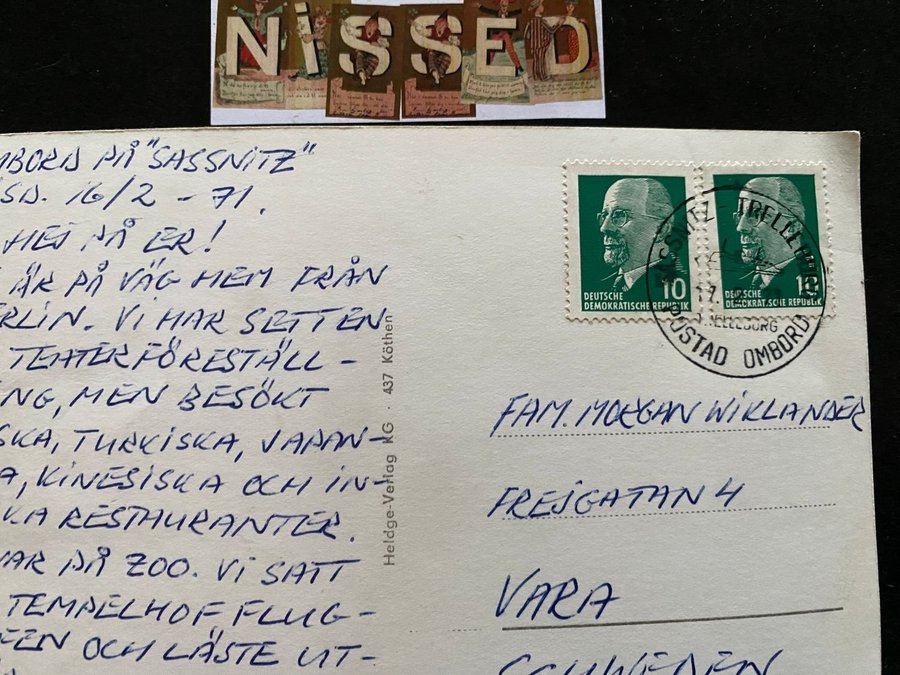 NiSSED
MBORD PÅ "SASSNITZ"
SD. 16/2 - 71.
HEJ PÅ ER!
ÄR PÅ VÄG HEM FRÅN
RLIN. VI HAR SETT EN
TEATERFÖRESTÄLL-
NG, MEN BESÖKT
SKA, TURKISKA, JAPAN-
A, KINESISKA OCH IN-
KA RESTAURANTER.
VAR PÅ ZOO. VI SATT
TEMPELHOF, FLUG-
EN OCH LÄSTE UT-
Heldge-Verlag KG · 437 Köthen
DEUTSCHE
DEMOKRATISCHE REPUBLIK
10
DEUTSCHE
DEMOKRATISCHE REPUBLIK
10
SASSNITZ - TRELLEBORG
TRELLEBORG
POSTAD OMBORD
FAM. MORGAN WIKLANDER
FREJGATAN 4
VARA
SCHWEDEN